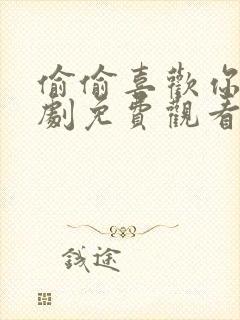 偷偷喜歡你
劇免費觀看
錢途